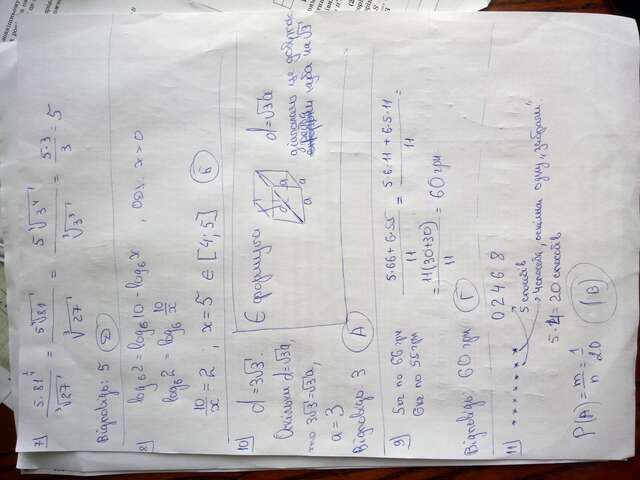 7) 5·81^¼ / ³√27 = 5 ⁴√81 / ³√27 = 5 ⁴√3⁴ / ³√3³ = 5·3 / 3 = 5
Відповідь: 5 Д
8) log₆2 = log₆10 - log₆x , ОДЗ: x>0
log₆2 = log₆ 10/x
10/x = 2 ; x=5 ∈ [4;5] Б
10) d = 3√3.
Оскільки d=√3a,
то 3√3=√3a,
a = 3
Відповідь: 3 А
Є формула
d a a a
d=√3a
діагональ це добуток
ребра куба на √3
9) 5 кг по 66 грн
6 кг по 55 грн
5·66+6·55 / 11 = 5·6·11+6·5·11 / 11 =
= 11(30+30) / 11 = 60 грн
Відповідь: 60 грн Г
11) 0 2 4 6 8
5 способів
4 способи, оскільки одну „забрали"
5·4=20 способів
P(A) = m/n = 1/20 (В)